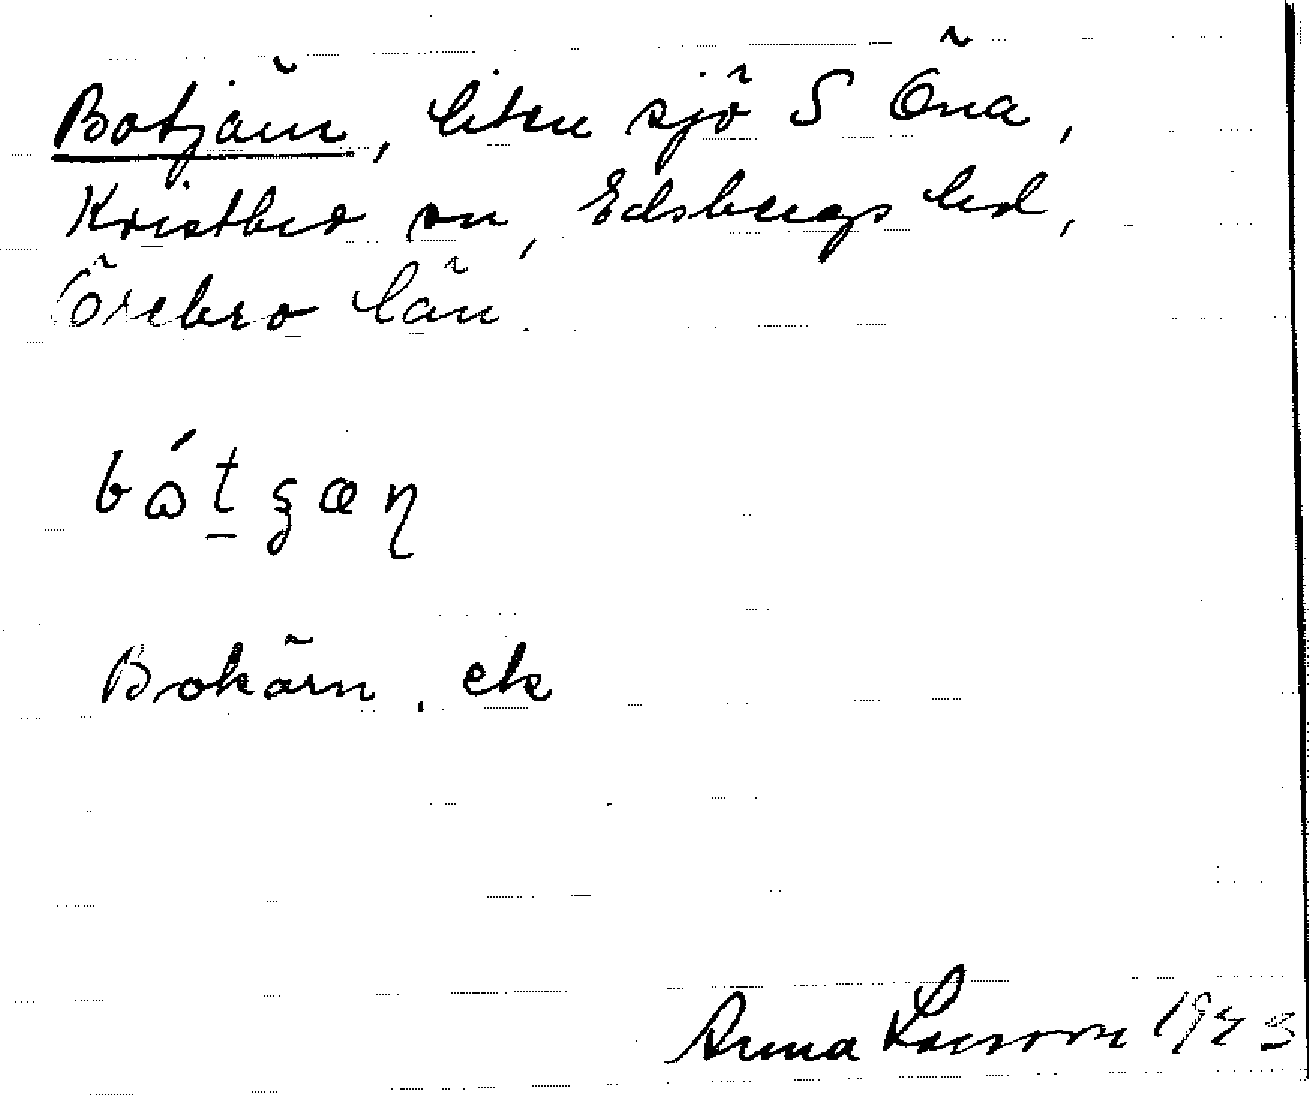 Botjärn, liten sjö S Öna,
Kvistbro sn, Edsbergs hd,
Örebro län.
bɷ́t̠ʒæɳ
Bokärn. ek
Anna Larsson 1933